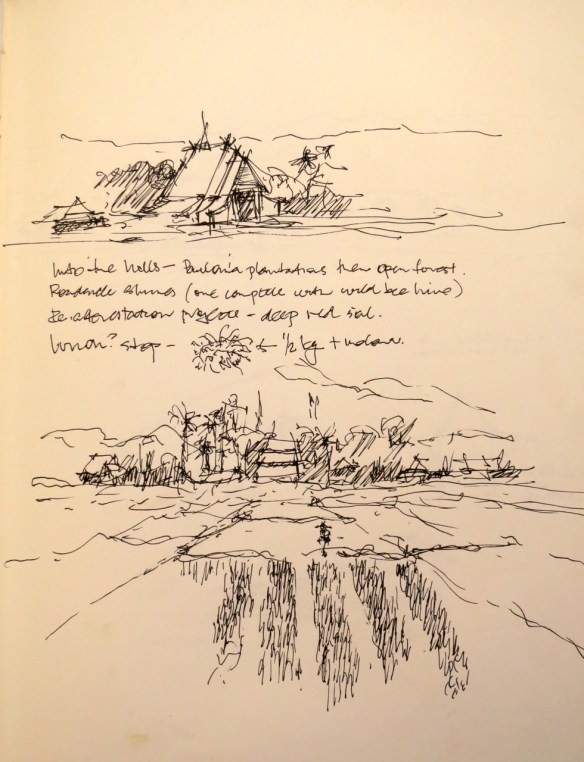 Into the hills – Paulonia plantations then open forest.
Roadside shrines (one complete with wild bee hive)
Re-afforestation projects – deep red soil.
? stop – ← 1/2 kg +